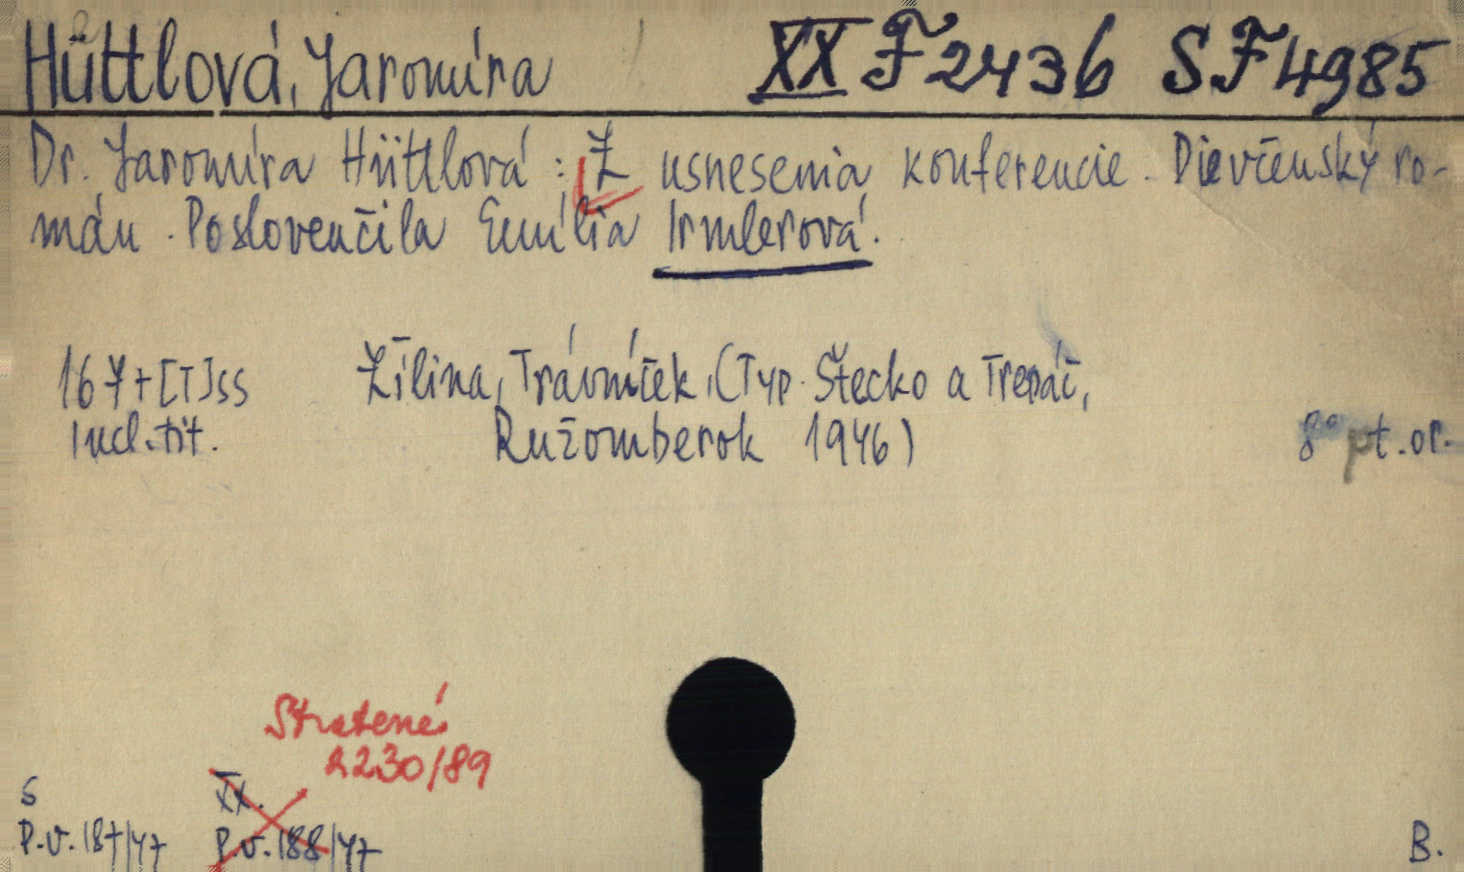 Hüttlová, Jaromíra XX F 2436 SF 4985
Dr. Jaromíra Hüttlová: Z usnesenia konferencie. Dievčenský ro-
mán. Poslovenčila Emília Irmlerová.
167+[I]ss Žilina, Trávníček, (Typ. Štecko a Trepáč,
Incl. tit. Ružomberok 1946) 8° pt. or.
Stratené
2230/89
S XX.
P.v. 187/47 P.v. 188/47
B.